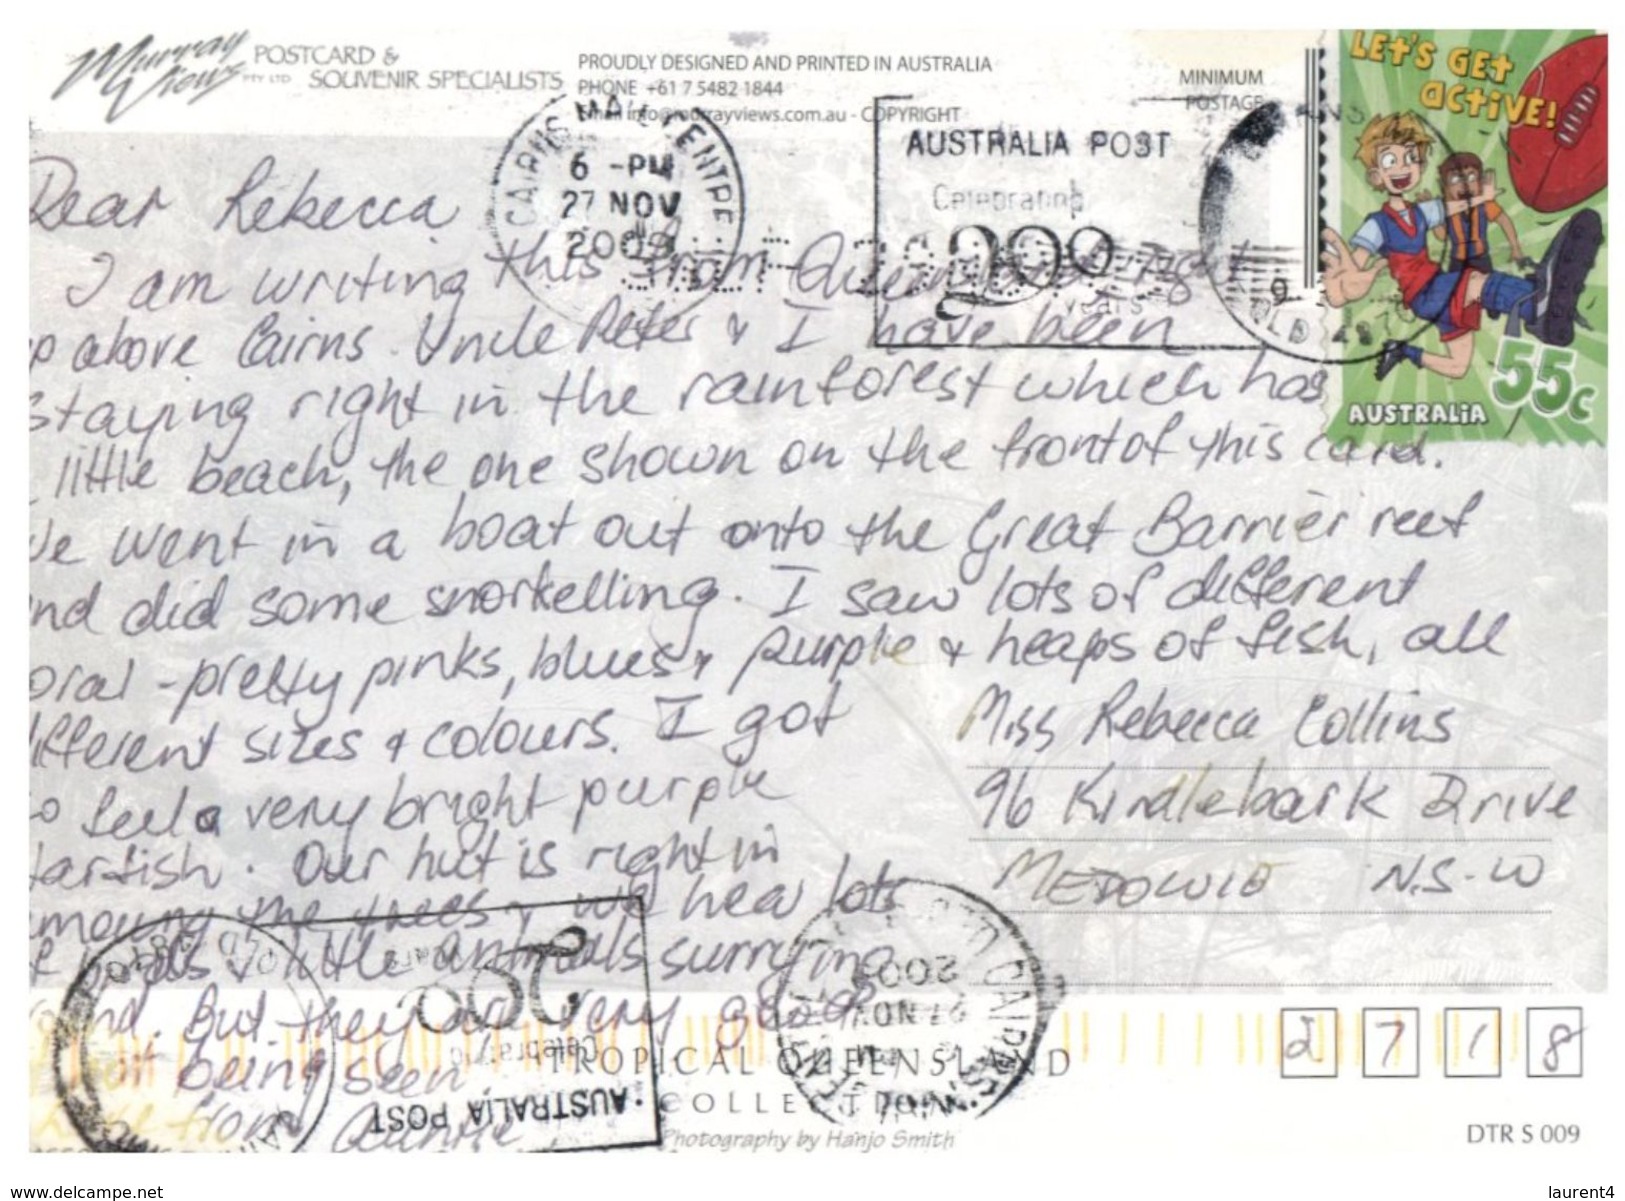 Murray Views PTY LTD
POSTCARD &
SOUVENIR SPECIALISTS
PROUDLY DESIGNED AND PRINTED IN AUSTRALIA
PHONE +61 7 5482 1844
Email info@murrayviews.com.au - COPYRIGHT
MINIMUM
POSTAGE
LET'S GET
ACTIVE!
55c
AUSTRALIA
CAIRNS MAIL CENTRE
6 -PM
27 NOV
2009
AUSTRALIA POST
Celebrating
200
years
Dear Rebecca
I am writing this from Queensland, right
up above Cairns. Uncle Peter & I have been
staying right in the rainforest which has
little beach, the one shown on the front of this card.
We went in a boat out onto the Great Barrier reef
nd did some snorkelling. I saw lots of different
oral - pretty pinks, blues & purple & heaps of fish, all
ifferent sizes & colours. I got
to feel a very bright purple
tarfish. Our hut is right in
among the trees & we hear lots
of birds & little animals surrying
nd. But they are very good
at being seen.
from Auntie
Miss Rebecca Collins
96 Kindlebark Drive
MEDOWIE N.S.W
2718
TROPICAL QUEENSLAND
COLLECTION
Photography by Hanjo Smith
DTR S 009
AUSTRALIA POST
Celebrating
200
years
www.delcampe.net
laurent4